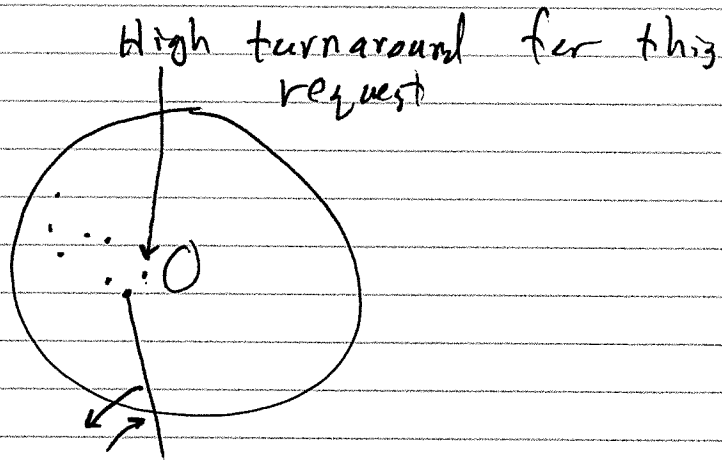 High turnaround for this
request